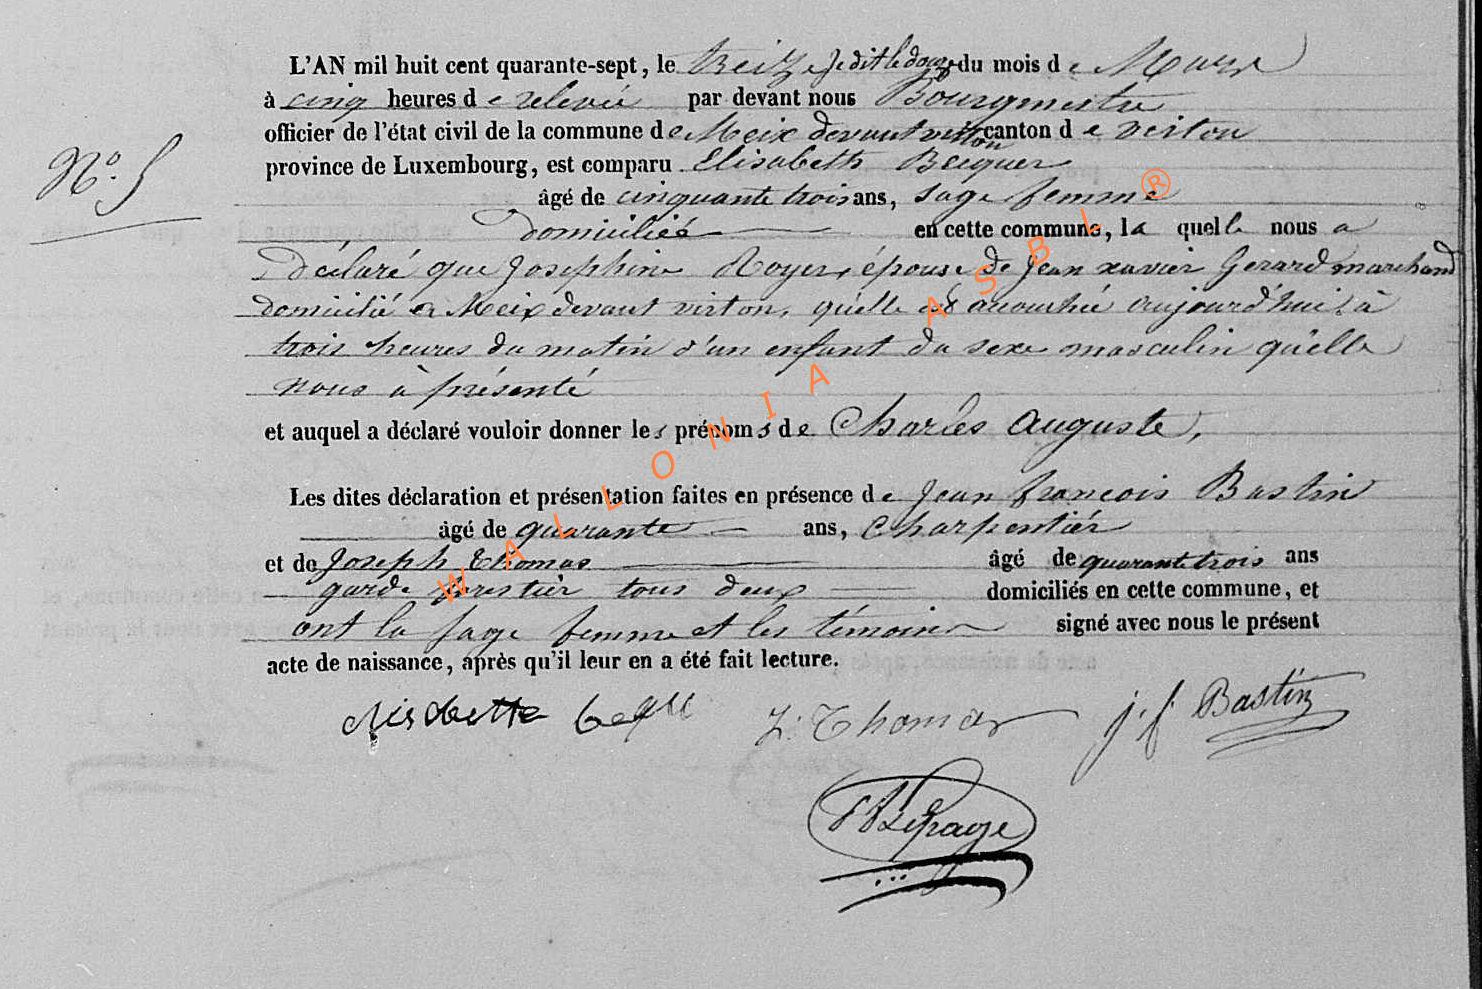 L'AN mil huit cent quarante-sept, le treize je dit le douze du mois de Mars
à cinq heures de relevée par devant nous Bourgmestre
officier de l'état civil de la commune de Meix devant virton canton de virton
province de Luxembourg, est comparu Elisabeth Becquer
N.º 5
âgé de cinquante trois ans, sage femme
domiciliée en cette commune, la quelle nous a
Déclaré que Josephine Royer, épouse de Jean xavier Gerard marchand
domicilié à Meix devant virton, qu'elle est accouchée aujourd'hui à
trois heures du matin d'un enfant du sexe masculin qu'elle
nous à présenté
et auquel a déclaré vouloir donner les prénoms de Charles Auguste,
Les dites déclaration et présentation faites en présence de Jean francois Bastin
âgé de quarante ans, Charpentier
et de Joseph Thomas âgé de quarante trois ans
garde forestier tous deux domiciliés en cette commune, et
ont la sage femme et les témoins signé avec nous le présent
acte de naissance, après qu'il leur en a été fait lecture.
J. Thomas J. f. Bastin
Lepage
WALLONIA ASBL ®